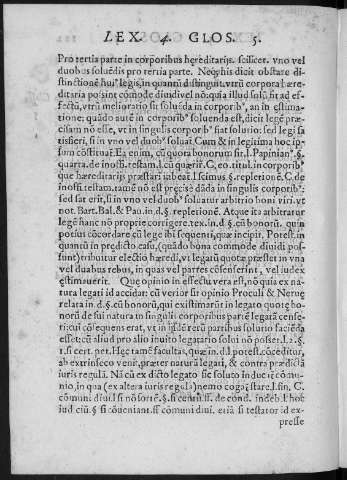 LEX. 4. GLOS. 5.
Pro tertia parte in corporibus hęreditarijs. scilicet. vno vel
duobus soluẽdis pro tertia parte. Neq; his dicit obstare di-
stinctionẽ hui⁹ legis, in quantũ distinguit. vtrũ corpora hæred
itaria possint cõmode diuidi vel nõ. quia illud solũ fit ad ef-
fectũ, vtrũ melioratio sit soluẽda in corporib⁹, an in ęstima-
tione; quãdo autẽ in corporib⁹ soluenda est, dicit legẽ præ-
cisam nõ esse, vt in singulis corporib⁹ fiat solutio: sed legi sa
tisfieri, si in vno vel duob⁹ soluat. Cum & in legitima hoc ip-
sum cõstituat. Ea enim, cũ quota bonorum sit. l. Papinian⁹. §.
quarta. de inoff. testam. l. cũ quærit. C. eo. titul. in corporib⁹
que hæreditarijs præstari iubeat. l. scimus §. repletionẽ. C. de
inoff. testam. tamẽ nõ est pręcise dãda in singulis corporib⁹:
sed sat erit, si in vno vel duob⁹ soluatur arbitrio boni viri. vt
not. Bart. Bal. & Pau. in. d. §. repletionẽ. Atque ita arbitratur
legẽ hanc nõ proprie corrigere. tex. in. d. §. cũ bonorũ. quin
potius cõcordare cũ lege ibi sequenti, quæ incipit. Potest. in
quantũ in prędicto casu, (quãdo bona commode diuidi pos
sunt) tribuitur electio hæredi, vt legatũ quotæ præstet in vna
vel duabus rebus, in quas vel partes cõsenserint, vel iudex
ęstimauerit. Que opinio in effectu vera est, nõ quia ex na
tura legati id accidat: cũ verior sit opinio Proculi & Neruę
relata in. d. §. cũ bonorũ, qui existimarũt in legato quotę bo-
norũ de sui natura in singulis corporibus partẽ legatã cense-
ri: cui cõsequens erat, vt in ijsdẽ rerũ partibus solutio faciẽda
esset: cũ aliud pro alio inuito legatario solui nõ posset. l. 2. §.
1. si cert. pet. Hęc tamẽ facultas, quæ in. d. l. potest. cõceditur,
ab extrinseco venit, præter naturã legati, & contra prædictã
iuris regulã. Nã cũ ex dicto legato sic soluto inducat̃ cõmu-
nio, in qua (ex altera iuris regula) nemo cogat̃ stare. l. fin. C.
cõmuni diui. l. si nõ sortẽ. §. si centũ. ff. de cond. indeb. l. hoc
iud ciũ. § si cõueniant. ff cõmuni diui. etiã si testator id ex-
presse